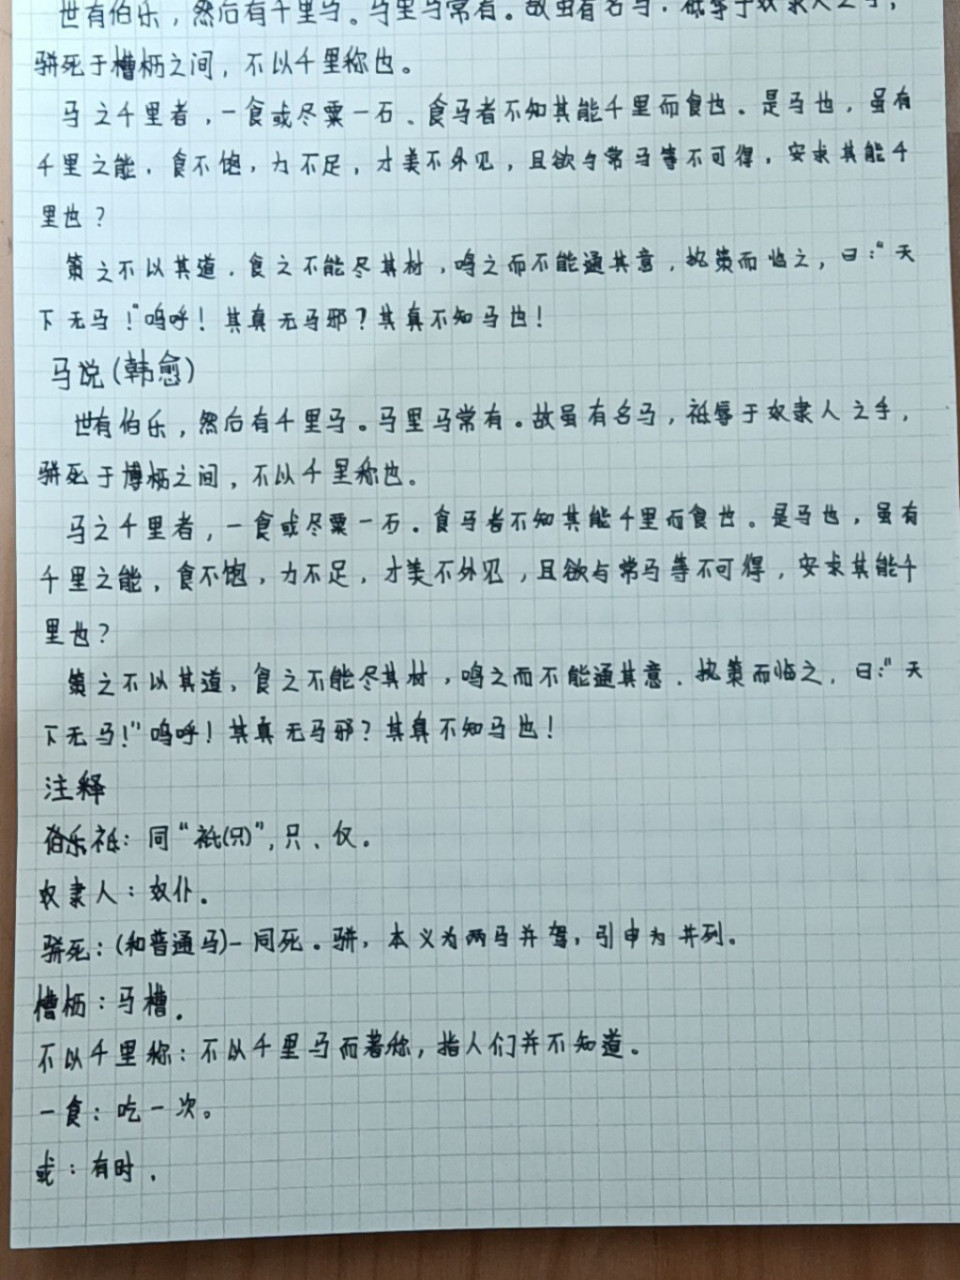 世有伯乐，然后有千里马。马里马常有。故虽有名马，祗辱于奴隶人之手，
骈死于槽枥之间，不以千里称也。
马之千里者，一食或尽粟一石、食马者不知其能千里而食也。是马也，虽有
千里之能，食不饱，力不足，才美不外见，且欲与常马等不可得，安求其能千
里也？
策之不以其道，食之不能尽其材，鸣之而不能通其意，执策而临之，曰：“天
下无马！”呜呼！其真无马邪？其真不知马也！
马说(韩愈)
世有伯乐，然后有千里马。马里马常有。故虽有名马，祗辱于奴隶人之手，
骈死于博枥之间，不以千里称也。
马之千里者，一食或尽粟一石。食马者不知其能千里而食也。是马也，虽有
千里之能，食不饱，力不足，才美不外见，且欲与常马等不可得，安求其能千
里也？
策之不以其道，食之不能尽其材，鸣之而不能通其意．执策而临之，曰：“天
下无马！”呜呼！其真无马邪？其真不知马也！
注释
伯乐祗：同“祗(只)”，只、仅。
奴隶人：奴仆。
骈死：(和普通马)一同死。骈，本义为两马并驾，引申为并列。
槽枥：马槽．
不以千里称：不以千里马而著称，指人们并不知道。
一食：吃一次。
或：有时．